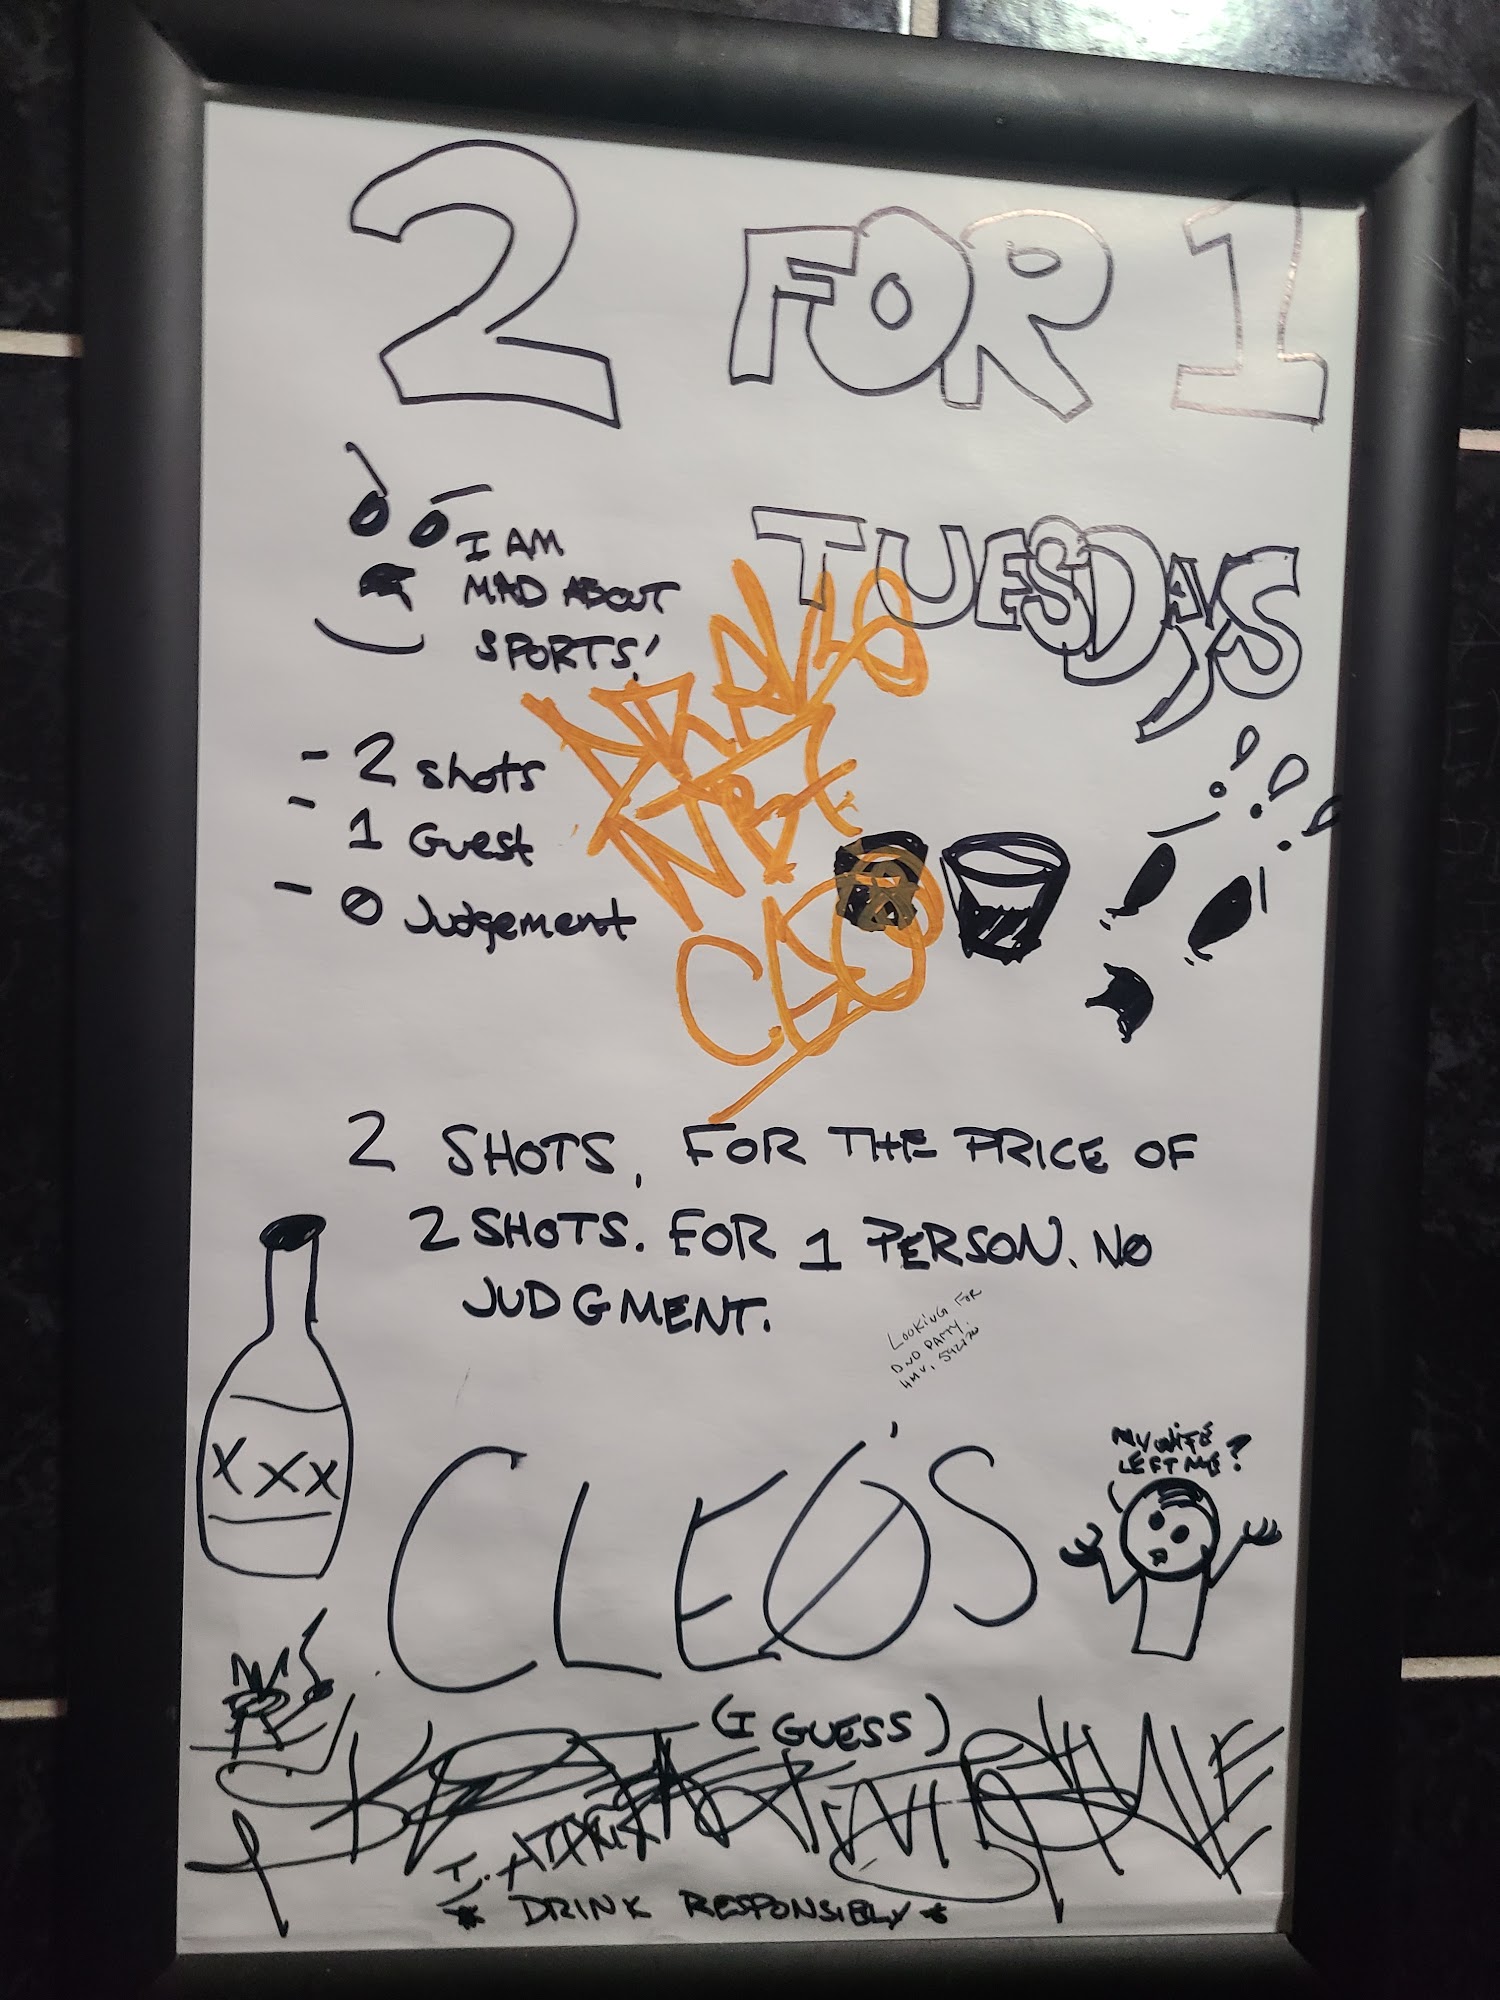 2 FOR 1
TUESDAYS
I AM
MAD ABOUT
SPORTS!
- 2 shots
- 1 Guest
- 0 Judgement
2 SHOTS, FOR THE PRICE OF
2 SHOTS. FOR 1 PERSON. NO
JUDGMENT.
LOOKING FOR
DND PARTY.
XXX
CLEO'S
MY WIFE
LEFT ME?
(I GUESS)
* DRINK RESPONSIBLY *